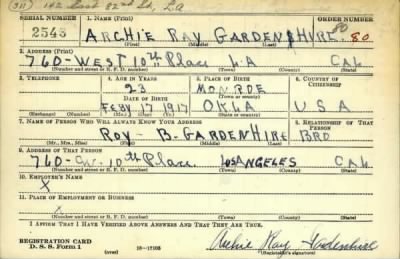 (311) 142 East 82nd St, LA
SERIAL NUMBER 1. NAME (Print)
2543 ARCHIE RAY GARDENSHIRE. 80
(First) (Middle) (Last)
2. ADDRESS (Print)
760-WEST 10th Place LA CAL
(Number and street or R. F. D. number) (Town) (County) (State)
3. TELEPHONE 4. AGE IN YEARS 5. PLACE OF BIRTH 6. COUNTRY OF CITIZENSHIP
23 MONROE
DATE OF BIRTH (Town or county)
FEBY 17 1917 OKLA USA
(Exchange) (Number) (Mo.) (Day) (Yr.) (State or country)
7. NAME OF PERSON WHO WILL ALWAYS KNOW YOUR ADDRESS 8. RELATIONSHIP OF THAT PERSON
ROY - B. GARDENHIRE BRO
(Mr., Mrs., Miss) (First) (Middle) (Last)
9. ADDRESS OF THAT PERSON
760-W. 10th Place LOS ANGELES CAL
(Number and street or R. F. D. number) (Town) (County) (State)
10. EMPLOYER'S NAME
X
11. PLACE OF EMPLOYMENT OR BUSINESS
X
(Number and street or R. F. D. number) (Town) (County) (State)
I AFFIRM THAT I HAVE VERIFIED ABOVE ANSWERS AND THAT THEY ARE TRUE.
REGISTRATION CARD
D. S. S. Form 1 16-17105 Archie Ray Gardenhire
(Registrant's signature)